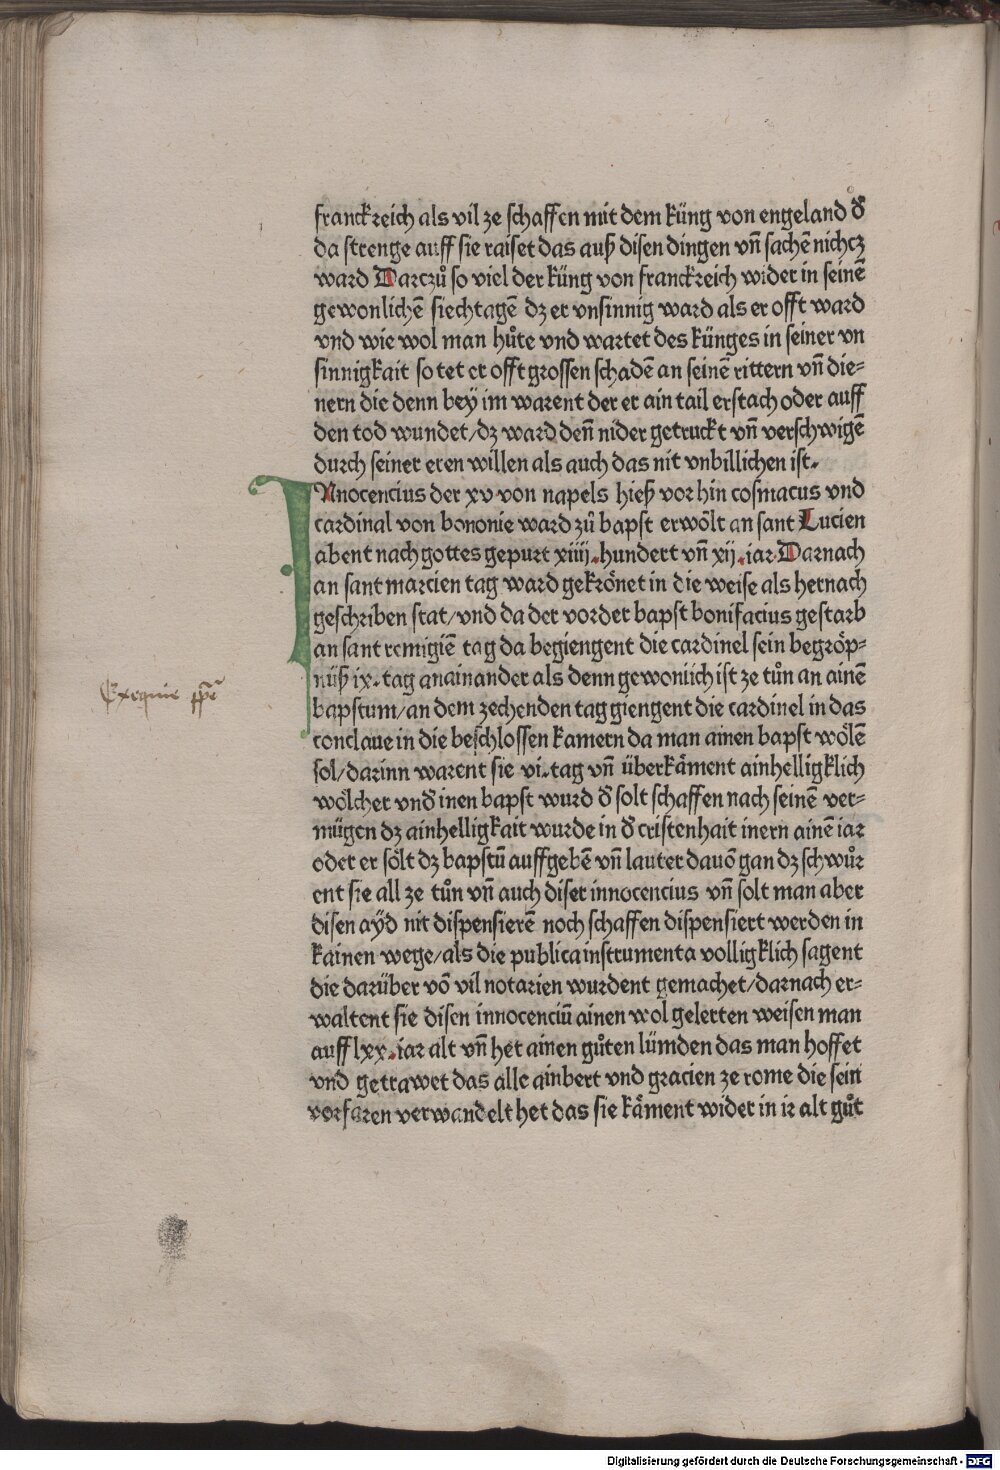 franckreich als vil ze schaffen mit dem küng von engeland đ
da strenge auff sie raiset das auß disen dingen vn̄ sachē nichcz
ward Darczů so viel der küng von franckreich wider in seinē
gewonlichē siechtagē dz er vnsinnig ward als er offt ward
vnd wie wol man hůte vnd wartet des künges in seiner vn
sinnigkait so tet er offt grossen schadē an seinē rittern vn̄ die⸗
nern die denn beÿ im warent der er ain tail erstach oder auff
den tod wundet/dz ward den̄ nider getruckt vn̄ verschwigē
durch seiner eren willen als auch das nit vnbillichen ist.
INnocencius der xv von napels hieß vor hin cosmacus vnd
cardinal von bononie ward zů bapst erwölt an sant Lucien
abent nach gottes gepurt xiiij.hundert vn̄ xij.iar.Darnach
an sant marcien tag ward gekrönet in die weise als hernach
geschriben stat/vnd da der vorder bapst bonifacius gestarb
an sant remigiē tag da begiengent die cardinel sein begröp⸗
nüß ix.tag anainander als denn gewonlich ist ze tůn an ainē
bapstum/an dem zechenden tag giengent die cardinel in das
conclaue in die beschlossen kamern da man ainen bapst wölē
sol/darinn warent sie vi.tag vn̄ überkåment ainhelligklich
wölcher vnđ inen bapst wurd đ solt schaffen nach seinē ver⸗
mügen dz ainhelligkait wurde in đ cristenhait inern ainē iar
oder er sölt dz bapstū auffgebē vn̄ lauter dauō gan dz schwůr
ent sie all ze tůn vn̄ auch diser innocencius vn̄ solt man aber
disen aÿd nit dispensierē noch schaffen dispensiert werden in
kainen wege/als die publica instrumenta volligklich sagent
die darüber vō vil notarien wurdent gemachet/darnach er⸗
waltent sie disen innocenciū ainen wol gelerten weisen man
auff lxx.iar alt vn̄ het ainen gůten lümden das man hoffet
vnd getrawet das alle ainbert vnd gracien ze rome die sein
vorfaren verwandelt het das sie kåment wider in ir alt gůt
Exequie
Digitalisierung gefördert durch die Deutsche Forschungsgemeinschaft - DFG